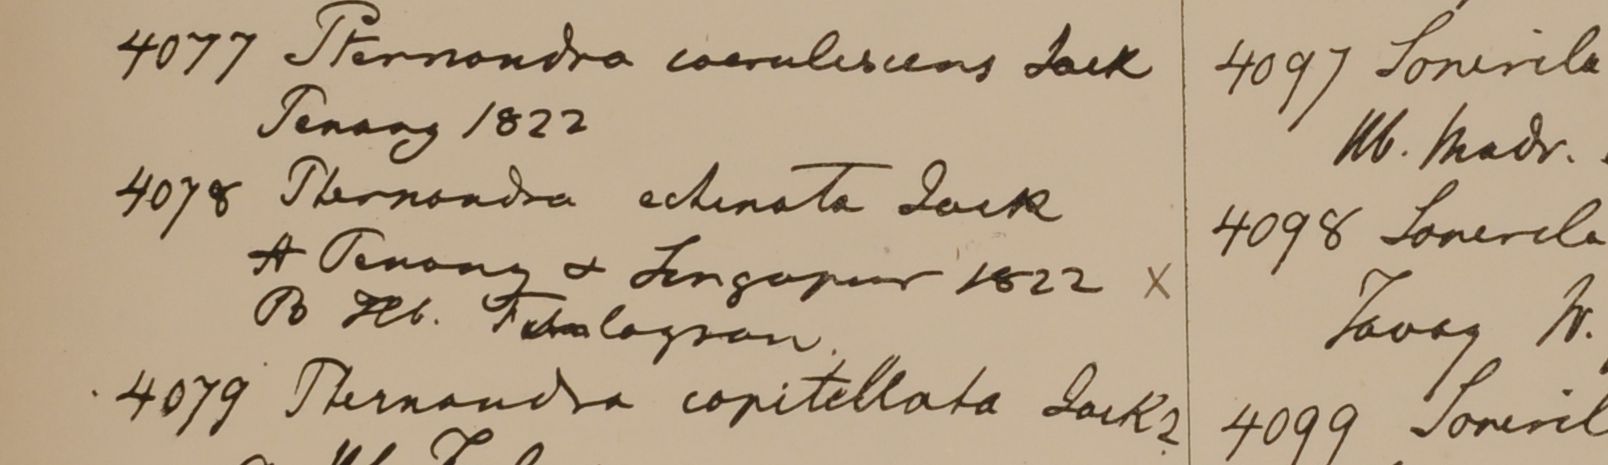 4077 Pternandra coerulescens Jack
Penang 1822
4078 Pternandra echinata Jack
A Penang & Singapur 1822 X
B Hb.
4079 Pternandra capitellata Jack?
4097 Sonerila
Hb. Madr.
4098 Sonerila
Tavoy W.
4099 Soneril